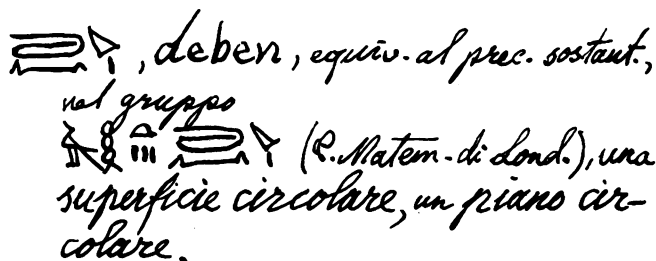 , deben, equiv. al prec. sostant.,
nel gruppo
(P. Matem. di Lond.), una
superficie circolare, un piano cir-
colare.